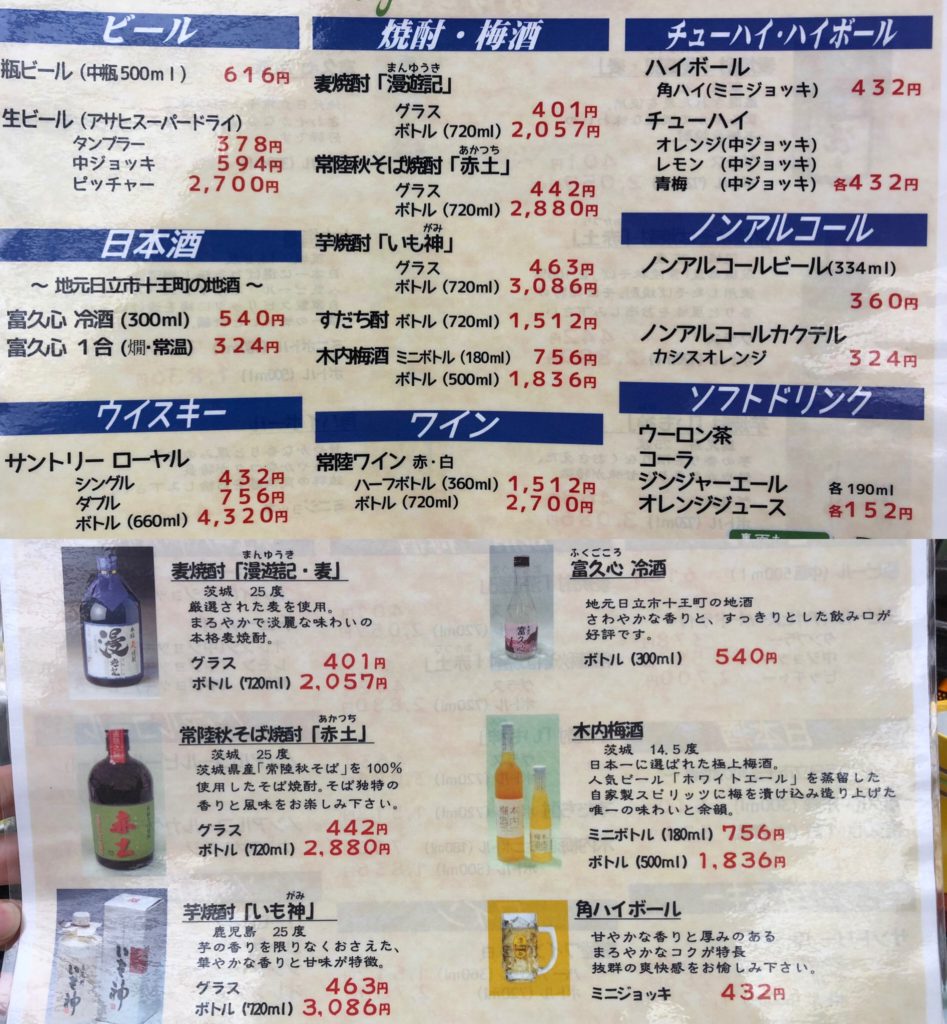 ビール
瓶ビール (中瓶500ml) 616円
生ビール (アサヒスーパードライ)
タンブラー 378円
中ジョッキ 594円
ピッチャー 2,700円
日本酒
～ 地元日立市十王町の地酒 ～
富久心 冷酒 (300ml) 540円
富久心 1合 (燗・常温) 324円
ウイスキー
サントリー ローヤル
シングル 432円
ダブル 756円
ボトル (660ml) 4,320円
焼酎・梅酒
まんゆうき
麦焼酎「漫遊記」
グラス 401円
ボトル (720ml) 2,057円
あかつち
常陸秋そば焼酎「赤土」
グラス 442円
ボトル (720ml) 2,880円
がみ
芋焼酎「いも神」
グラス 463円
ボトル (720ml) 3,086円
すだち酎 ボトル (720ml) 1,512円
木内梅酒 ミニボトル (180ml) 756円
ボトル (500ml) 1,836円
ワイン
常陸ワイン 赤・白
ハーフボトル (360ml) 1,512円
ボトル (720ml) 2,700円
チューハイ・ハイボール
ハイボール
角ハイ(ミニジョッキ) 432円
チューハイ
オレンジ(中ジョッキ)
レモン (中ジョッキ)
青梅 (中ジョッキ) 各432円
ノンアルコール
ノンアルコールビール(334ml)
360円
ノンアルコールカクテル
カシスオレンジ 324円
ソフトドリンク
ウーロン茶
コーラ
ジンジャーエール 各190ml
オレンジジュース 各152円
まんゆうき
麦焼酎「漫遊記・麦」
茨城 25度
厳選された麦を使用。
まろやかで淡麗な味わいの
本格麦焼酎。
グラス 401円
ボトル (720ml) 2,057円
あかつち
常陸秋そば焼酎「赤土」
茨城 25度
茨城県産「常陸秋そば」を100%
使用したそば焼酎。そば独特の
香りと風味をお楽しみ下さい。
グラス 442円
ボトル (720ml) 2,880円
赤土
がみ
芋焼酎「いも神」
鹿児島 25度
芋の香りを限りなくおさえた、
華やかな香りと甘味が特徴。
グラス 463円
ボトル (720ml) 3,086円
いも神
いも神
ふくごころ
富久心 冷酒
地元日立市十王町の地酒
さわやかな香りと、すっきりとした飲み口が
好評です。
ボトル (300ml) 540円
富久心
木内梅酒
茨城 14.5度
日本一に選ばれた極上梅酒。
人気ビール「ホワイトエール」を蒸留した
自家製スピリッツに梅を漬け込み造り上げた
唯一の味わいと余韻。
ミニボトル (180ml) 756円
ボトル (500ml) 1,836円
角ハイボール
甘やかな香りと厚みのある
まろやかなコクが特長
抜群の爽快感をお愉しみ下さい。
ミニジョッキ 432円